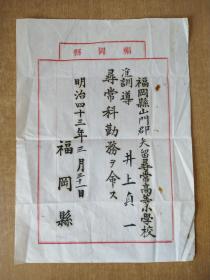 福岡縣
福岡縣山門郡矢留尋常高等小學校
訓導 井上貞一
尋常科勤務ヲ命ス
明治四十三年三月三十一日
福岡縣